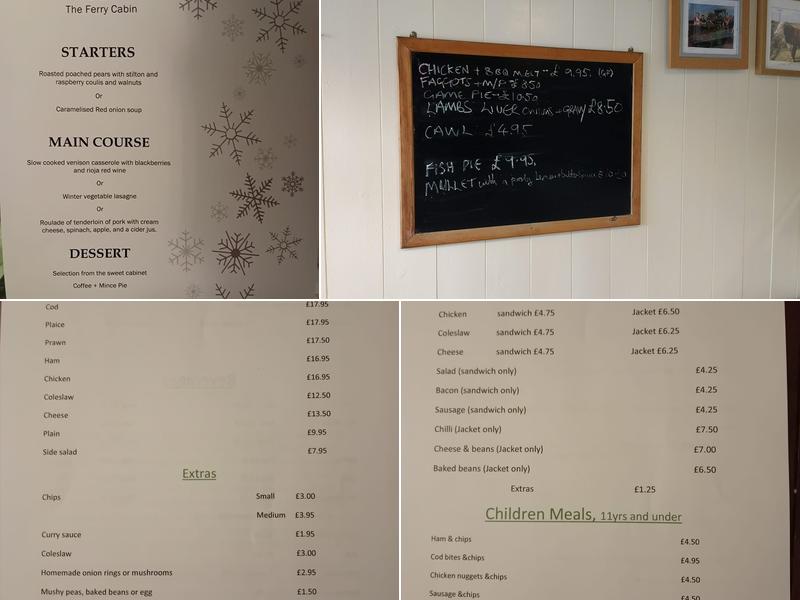 The Ferry Cabin
STARTERS
Roasted poached pears with stilton and
raspberry coulis and walnuts
Or
Caramelised Red onion soup
MAIN COURSE
Slow cooked venison casserole with blackberries
and rioja red wine
Or
Winter vegetable lasagne
Or
Roulade of tenderloin of pork with cream
cheese, spinach, apple, and a cider jus.
DESSERT
Selection from the sweet cabinet
Coffee + Mince Pie
CHICKEN + BBQ MELT £9.95. (GF)
FAGGOTS + M/P £8.50
GAME PIE £10.50
LAMBS LIVER ONIONS + GRAVY £8.50
CAWL £4.95
FISH PIE £9.95.
MULLET with a
Cod £17.95
Plaice £17.95
Prawn £17.50
Ham £16.95
Chicken £16.95
Coleslaw £12.50
Cheese £13.50
Plain £9.95
Side salad £7.95
Extras
Chips Small £3.00
Medium £3.95
Curry sauce £1.95
Coleslaw £3.00
Homemade onion rings or mushrooms £2.95
Mushy peas, baked beans or egg £1.50
Chicken sandwich £4.75 Jacket £6.50
Coleslaw sandwich £4.75 Jacket £6.25
Cheese sandwich £4.75 Jacket £6.25
Salad (sandwich only) £4.25
Bacon (sandwich only) £4.25
Sausage (sandwich only) £4.25
Chilli (Jacket only) £7.50
Cheese & beans (Jacket only) £7.00
Baked beans (Jacket only) £6.50
Extras £1.25
Children Meals, 11yrs and under
Ham & chips £4.50
Cod bites &chips £4.95
Chicken nuggets &chips £4.50
Sausage &chips £4.50